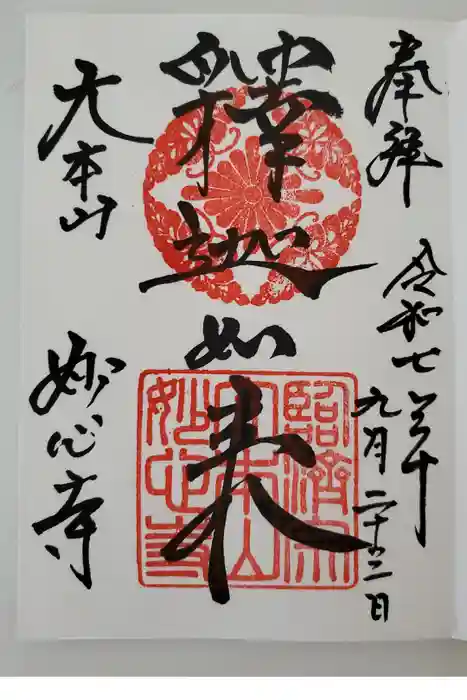 奉拝
令和七年
九月二十三日
釋迦如来
大本山
妙心寺
臨済宗
大本山
妙心寺